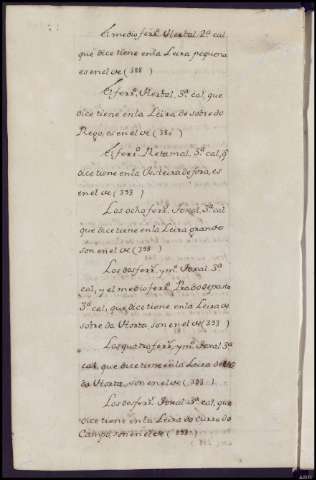 El medio ferr.º Utoxal 2ª cal,
que dice tiene en la Leira pequena
es en el de (388)
El ferr.º 3ª cal, que
dice tiene en la Leira de sobre do
Rego, es en el de (38 )
El ferr.º Retamal, 3ª cal, q.e
dice tiene en la de fora, es
en el de (393)
Los ocho ferr.s Toxal, 3ª cal
que dice tiene en la Leira grande
son en el de (398)
Los dos ferr.s y m.º Toxal 3ª
cal, y el medio ferr.º Prado de pasto
3ª cal, que dice tiene en la Leira de
sobre da Utorta, son en el de (393)
Los quatro ferr.s y m.º Toxal 3ª
cal, que dice tiene en la Leira de
da Utorta, son en el de (393)
Los dos ferr.s Toxal 3ª cal, que
dice tiene en la Leira do curro do
Campo, son en el de (393)